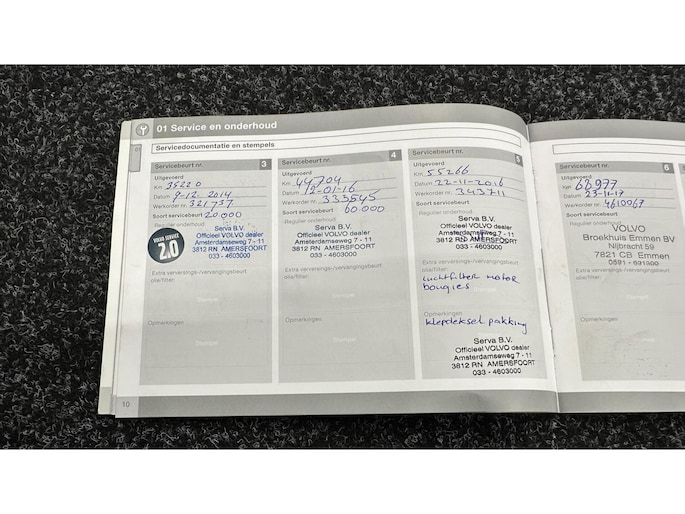 01 Service en onderhoud
Servicedocumentatie en stempels
Servicebeurt nr. 3
Uitgevoerd
Km 35220
Datum 9-12-2014
Werkorder nr. 321737
Soort servicebeurt 20.000
Regulier onderhoud
VOLVO SERVICE
2.0
Serva B.V.
Officieel VOLVO dealer
Amsterdamseweg 7 - 11
3812 RN AMERSFOORT
033 - 4603000
Extra verversings-/vervangingsbeurt
olie/filter:
Opmerkingen
Servicebeurt nr. 4
Uitgevoerd
Km 44704
Datum 12-01-16
Werkorder nr. 333545
Soort servicebeurt 60.000
Regulier onderhoud
Serva B.V.
Officieel VOLVO dealer
Amsterdamseweg 7 - 11
3812 RN AMERSFOORT
033 - 4603000
Extra verversings-/vervangingsbeurt
olie/filter:
Opmerkingen
Servicebeurt nr. 5
Uitgevoerd
Km 55266
Datum 22-11-2016
Werkorder nr. 343711
Soort servicebeurt
Regulier onderhoud
Serva B.V.
Officieel VOLVO dealer
Amsterdamseweg 7 - 11
3812 RN AMERSFOORT
033 - 4603000
Extra verversings-/vervangingsbeurt
olie/filter:
Luchtfilter motor
bougies
Opmerkingen
klepdeksel pakking
Serva B.V.
Officieel VOLVO dealer
Amsterdamseweg 7 - 11
3812 RN AMERSFOORT
033 - 4603000
10
Servicebeurt nr. 6
Uitgevoerd
Km 68977
Datum 23-11-17
Werkorder nr. 4610067
Soort servicebeurt
VOLVO
Broekhuis Emmen BV
Nijbracht 59
7821 CB Emmen
0591 - 631900
Extra verversings-/vervangingsbeurt
olie/filter:
Opmerkingen